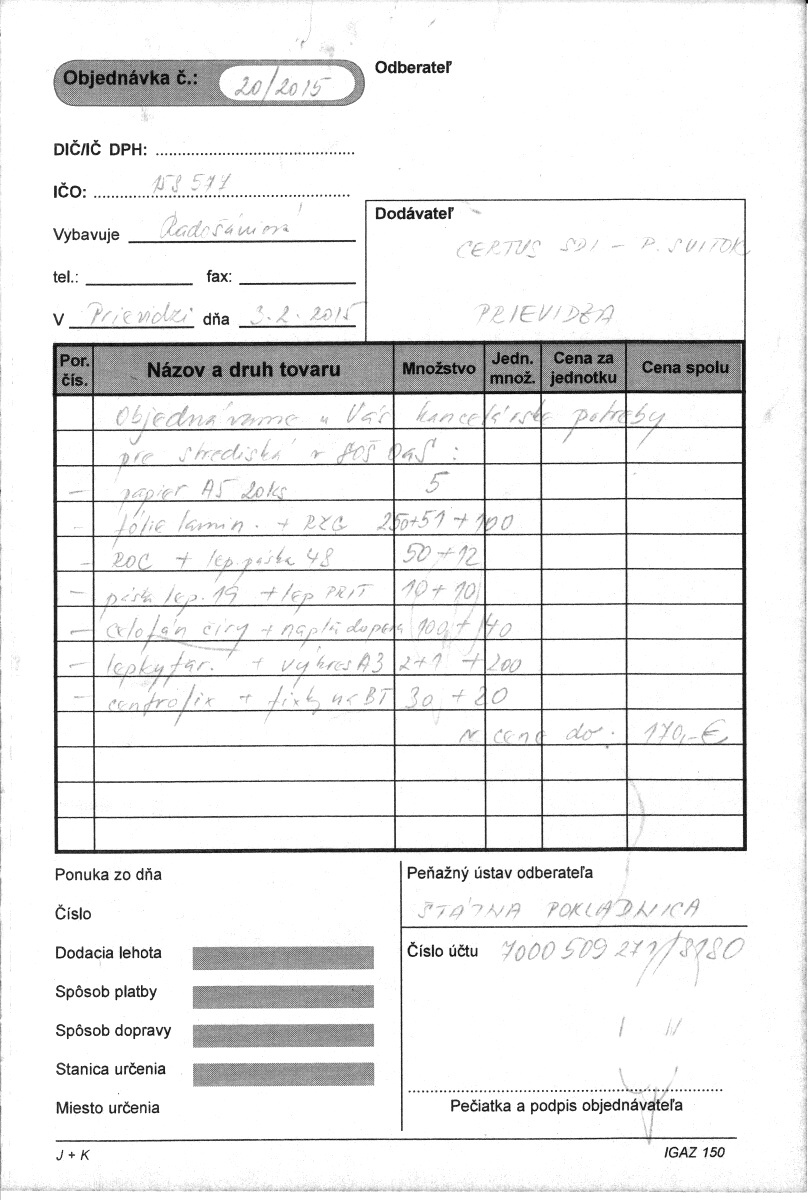 Objednávka č.: 20/2015
Odberateľ
DIČ/IČ DPH:
IČO: 158 577
Vybavuje
Dodávateľ
CERTUS SDI - P. SVITOK
tel.: fax:
V Prievidzi dňa 3.2.2015
PRIEVIDZA
Por. čís. Názov a druh tovaru Množstvo Jedn. množ. Cena za jednotku Cena spolu
Objednávame u Vás kancelárske potreby
pre strediská v SOŠ OaS :
- papier A5 20ks 5
- fólie lamin. + 250+51+100
- ROC + lep. páska 48 50+12
- páska lep. 19 + lep PRIT 10+10
- celofán číry + 100+140
- + výkres A3 2+1 +200
- centrofix + fixky na BT 30 +20
v cene do: 170,-€
Ponuka zo dňa
Peňažný ústav odberateľa
Číslo
ŠTÁTNA POKLADNICA
Dodacia lehota
Číslo účtu 7000509271/8180
Spôsob platby
Spôsob dopravy
Stanica určenia
Miesto určenia
Pečiatka a podpis objednávateľa
J + K
IGAZ 150